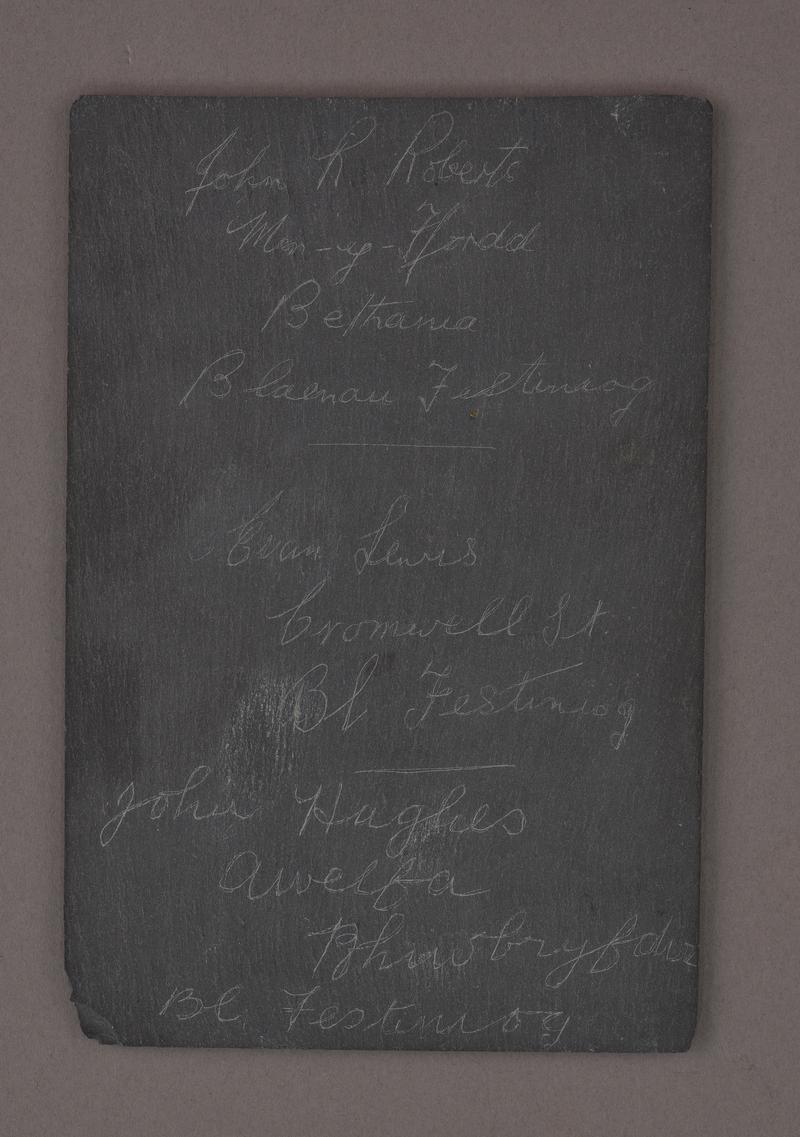 John R Roberts
Men-y-Ffordd
Bethania
Blaenau Festiniog
Evan Lewis
Cromwell St.
Bl Festiniog
John Hughes
Awelfa
Bl Festiniog